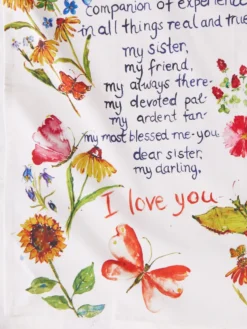 companion of experience
in all things real and true
my sister,
my friend,
my always there-
my devoted pal-
my ardent fan-
my most blessed me-you
dear sister,
my darling,
I love you